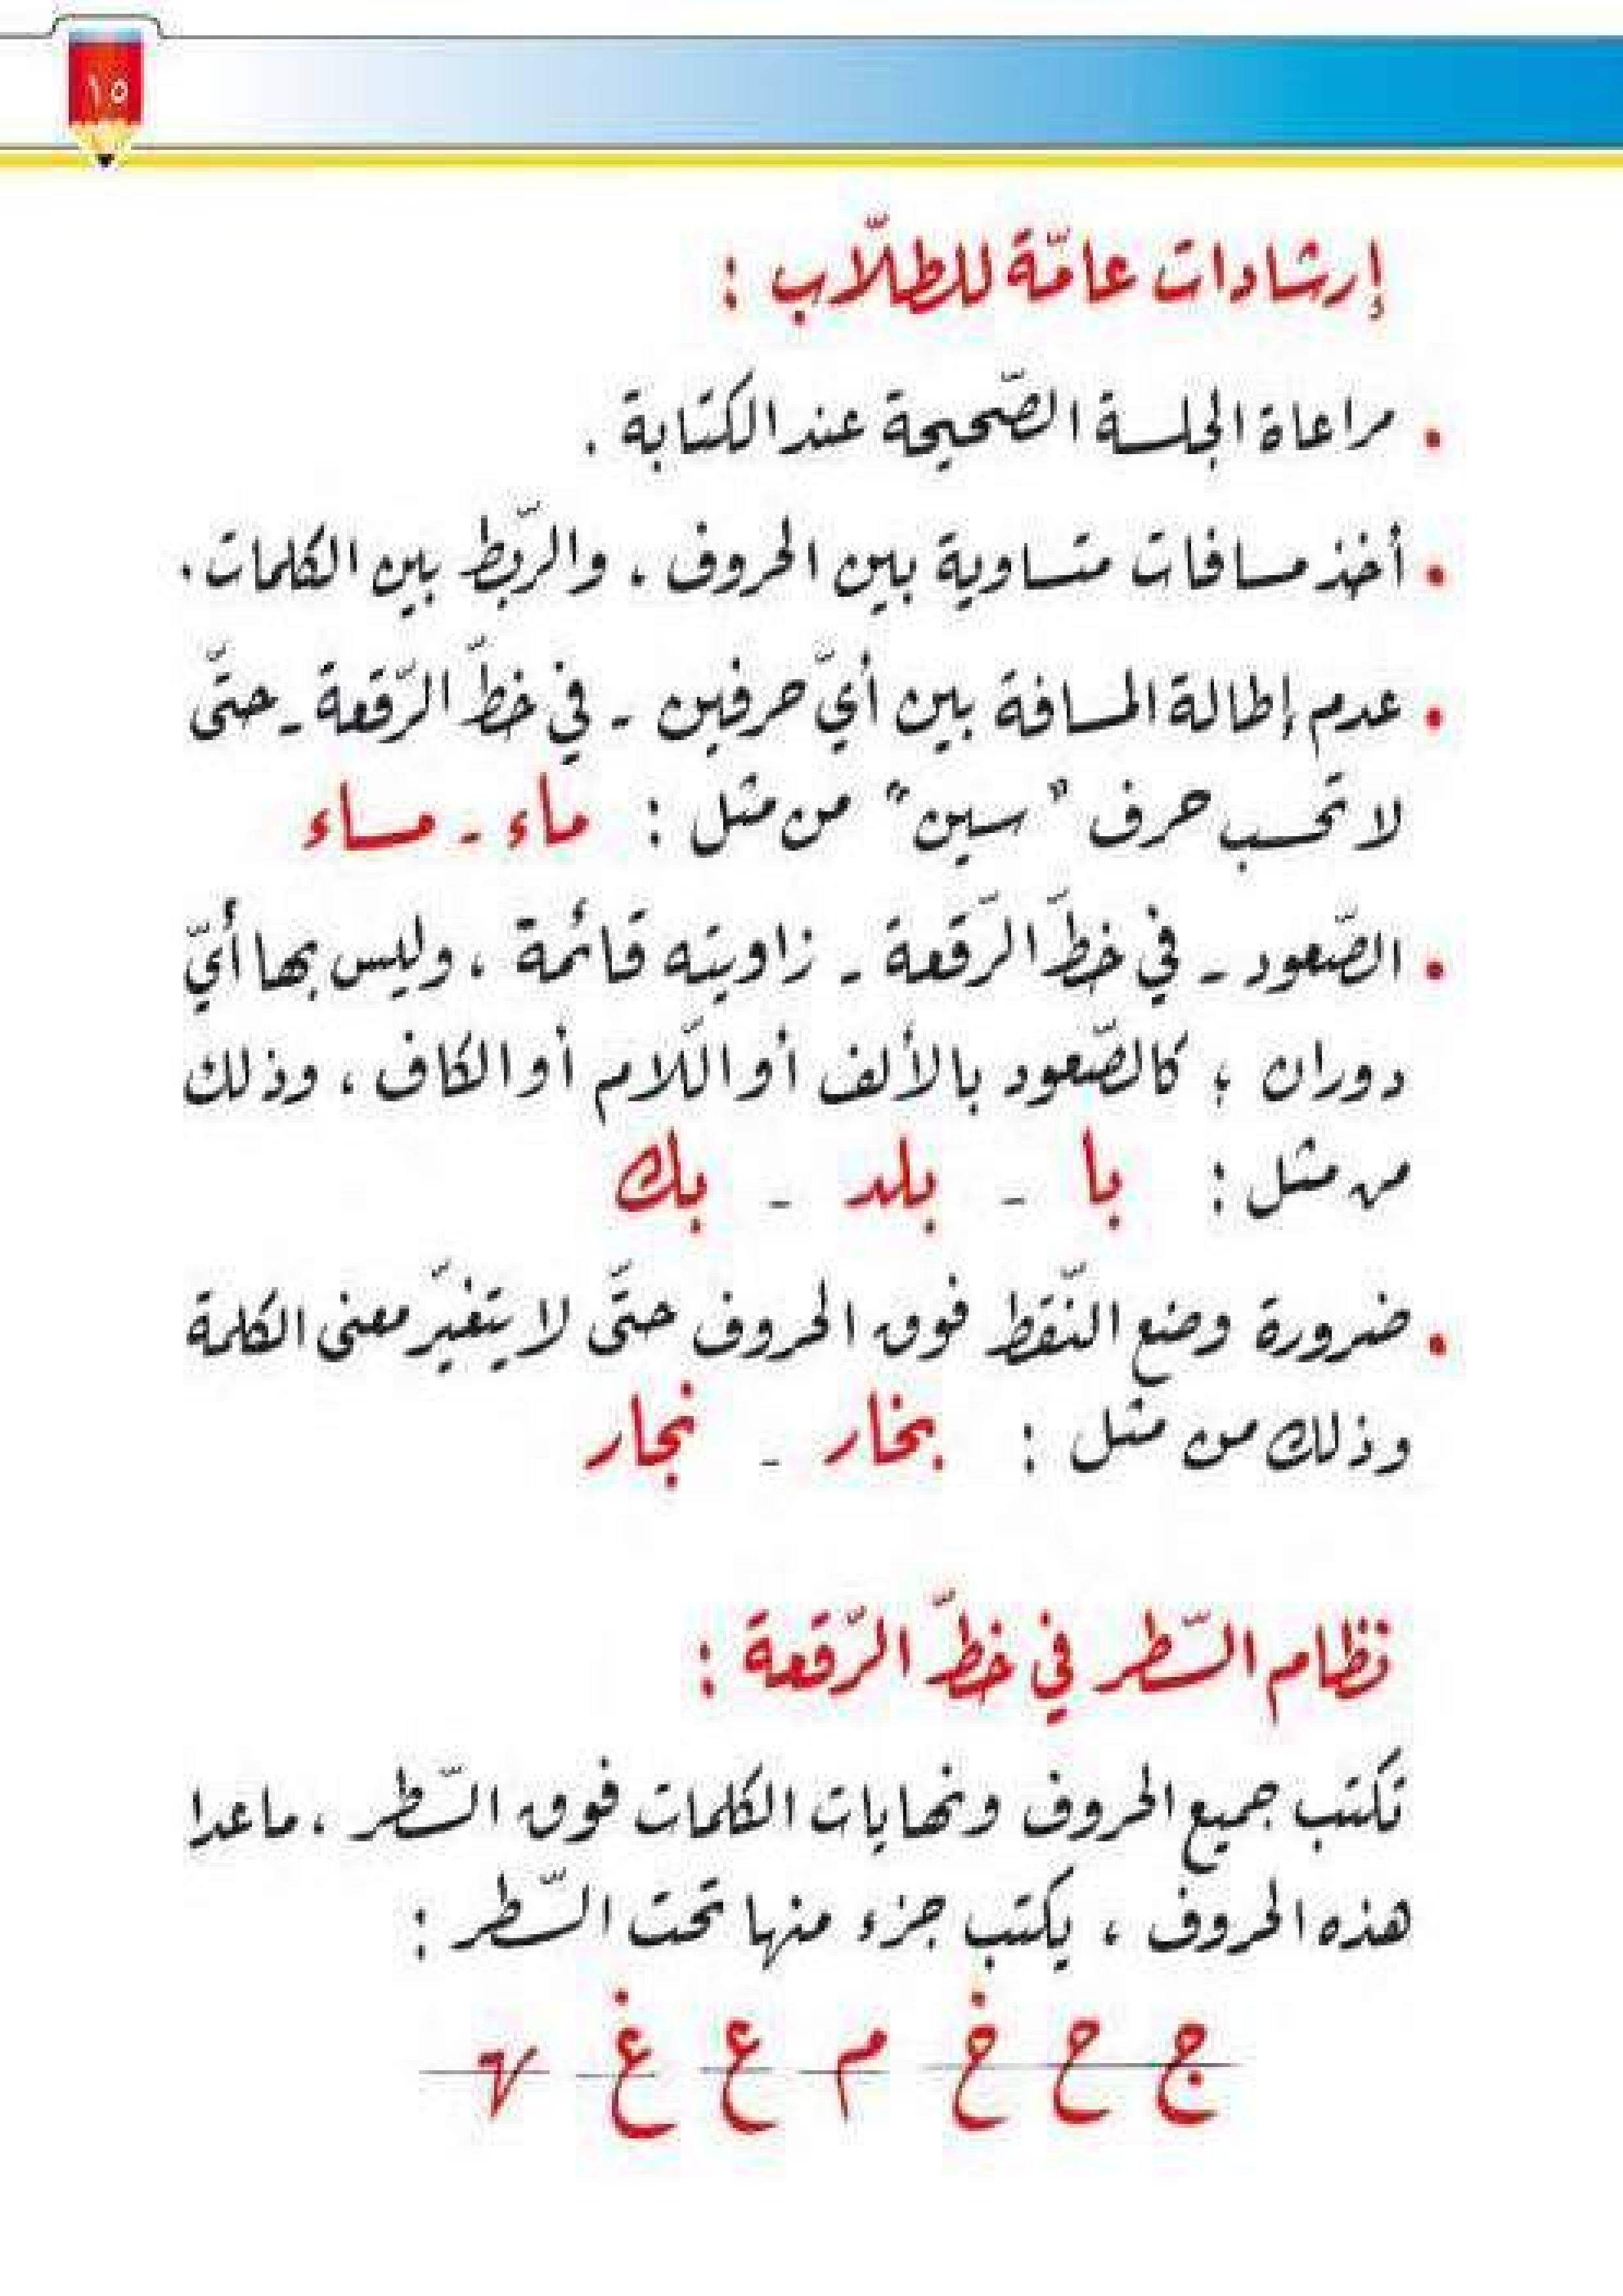 ١٥
إرشادات عامّة للطلّاب :
• مراعاة الجلسة الصّحيحة عند الكتابة .
• أخذ مسافات متساوية بين الحروف ، والرّبط بين الكلمات .
• عدم إطالة المسافة بين أيّ حرفين - في خطّ الرّقعة - حتّى
لا تحسب حرف " سين " من مثل : ماء - مساء
• الصّعود - في خطّ الرّقعة - زاويته قائمة ، وليس بها أيّ
دوران ؛ كالصّعود بالألف أو اللّام أو الكاف ، وذلك
من مثل : با - بلد - بك
• ضرورة وضع النّقط فوق الحروف حتّى لا يتغيّر معنى الكلمة
وذلك من مثل : بخار - نجار
نظام السّطر في خطّ الرّقعة :
تكتب جميع الحروف ونهايات الكلمات فوق السّطر ، ماعدا
هذه الحروف ، يكتب جزء منها تحت السّطر :
ج ح خ م ع غ ه